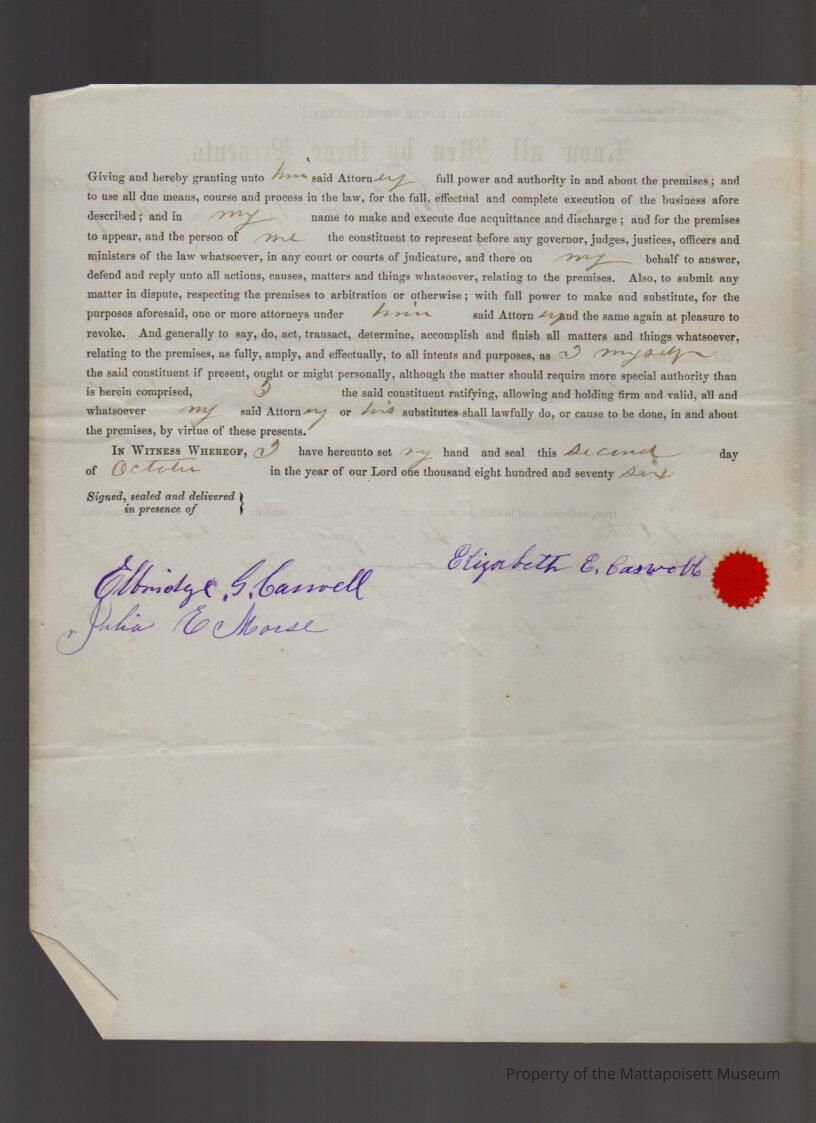 [SPECIAL POWER OF ATTORNEY.]
Know all Men by these Presents.
Giving and hereby granting unto him said Attorney full power and authority in and about the premises; and
to use all due means, course and process in the law, for the full, effectual and complete execution of the business afore
described; and in my name to make and execute due acquittance and discharge; and for the premises
to appear, and the person of me the constituent to represent before any governor, judges, justices, officers and
ministers of the law whatsoever, in any court or courts of judicature, and there on my behalf to answer,
defend and reply unto all actions, causes, matters and things whatsoever, relating to the premises. Also, to submit any
matter in dispute, respecting the premises to arbitration or otherwise; with full power to make and substitute, for the
purposes aforesaid, one or more attorneys under him said Attorney and the same again at pleasure to
revoke. And generally to say, do, act, transact, determine, accomplish and finish all matters and things whatsoever,
relating to the premises, as fully, amply, and effectually, to all intents and purposes, as I myself
the said constituent if present, ought or might personally, although the matter should require more special authority than
is herein comprised, I the said constituent ratifying, allowing and holding firm and valid, all and
whatsoever my said Attorney or his substitutes shall lawfully do, or cause to be done, in and about
the premises, by virtue of these presents.
IN WITNESS WHEREOF, I have hereunto set my hand and seal this second day
of October in the year of our Lord one thousand eight hundred and seventy six
Signed, sealed and delivered }
in presence of
Elizabeth E. Caswell
Elbridge G. Caswell
Julia E Morse
Property of the Mattapoisett Museum